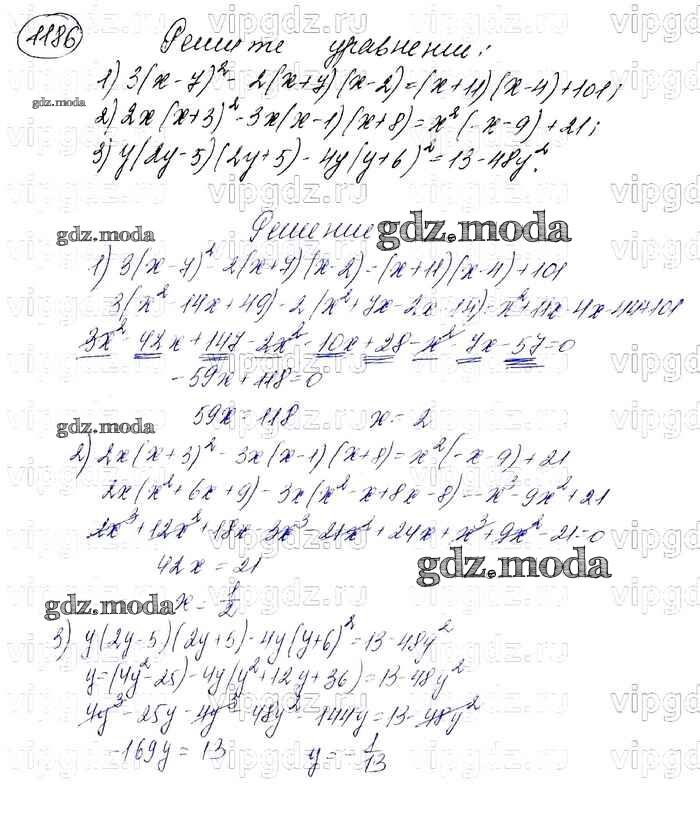 1186 Решите уравнении:
1) 3(x-7)² - 2(x+7)(x-2)=(x+11)(x-4)+101;
gdz.moda
2) 2x(x+3)² - 3x(x-1)(x+8)=x²(-x-9)+21;
3) y(2y-5)(2y+5) - 4y(y+6)²=13-48y².
Решение
gdz.moda
gdz.moda
1) 3(x-7)² - 2(x+7)(x-2) = (x+11)(x-4)+101
3(x²-14x+49)-2(x²+7x-2x-14)=x²+11x-4x-44+101
3x²-42x+147-2x²-10x+28-x²-7x-57=0
-59x+118=0
59x=118 x=2
gdz.moda
2) 2x(x+3)² - 3x(x-1)(x+8)=x²(-x-9)+21
2x(x²+6x+9)-3x(x²-x+8x-8)=-x³-9x²+21
2x³+12x²+18x-3x³-21x²+24x+x³+9x²-21=0
42x=21
gdz.moda
x=1/2
gdz.moda
3) y(2y-5)(2y+5)-4y(y+6)²=13-48y²
y=(4y²-25)-4y(y²+12y+36)=13-48y²
4y³-25y-4y³-48y²-144y=13-48y²
-169y=13 y=-1/13